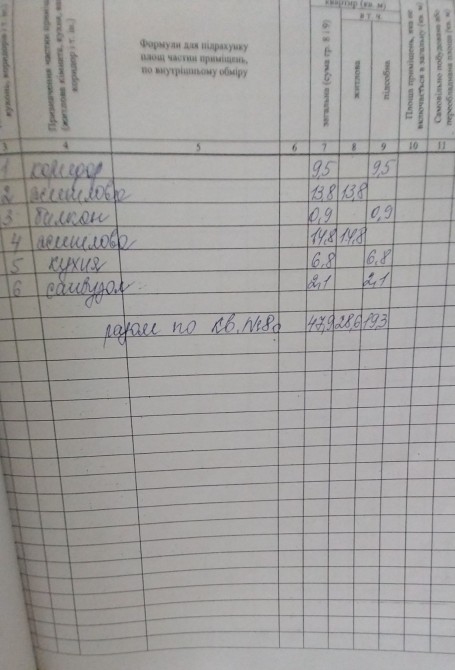 Призначення частин
(житлова кімната, кухня,
коридор і т. ін.)
Формули для підрахунку
площ частин приміщень,
по внутрішньому обміру
квартир (кв. м)
в т. ч.
загальна (сума гр. 8 і 9)
житлова
підсобна
Площа приміщень, яка не
включається в загальну (кв. м)
Самовільно побудовані або
переобладнана площа (кв. м)
3 4 5 6 7 8 9 10 11
1 коридор 9,5 9,5
2 житлова 13,8 13,8
3 балкон 0,9 0,9
4 житлова 14,8 14,8
5 кухня 6,8 6,8
6 санвузол 2,1 2,1
разом по кв. №8 47,9 28,6 19,3